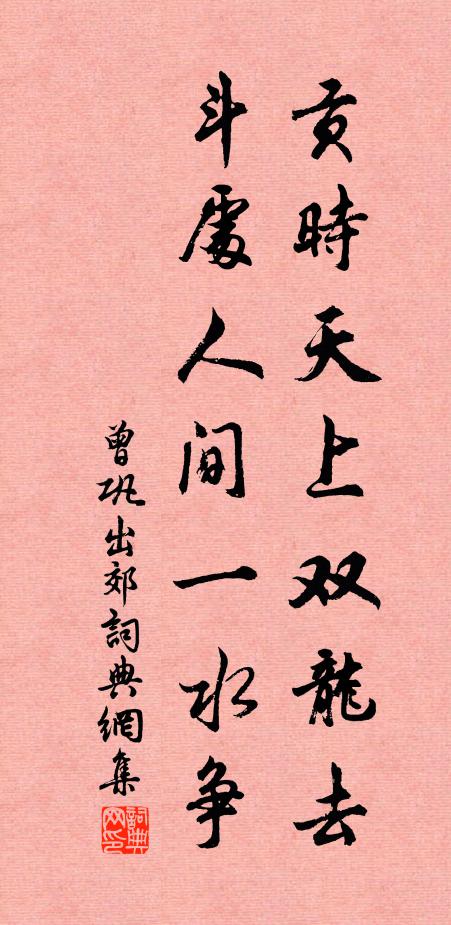 貢時天上双龍去
斗處人间一水争
曾巩出郊詞典網集
詞典网印